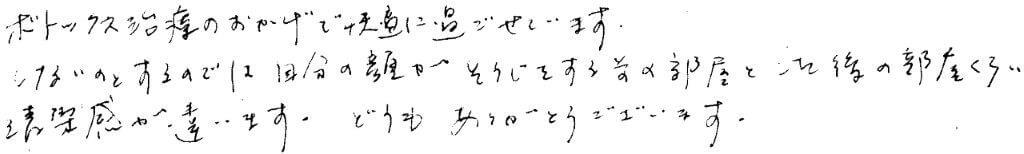 ボトックス治療のおかげで快適に過ごせています。
しないのとするのでは自分の顔がそうじをする前の部屋とした後の部屋くらい
清潔感が違います。どうもありがとうございます。